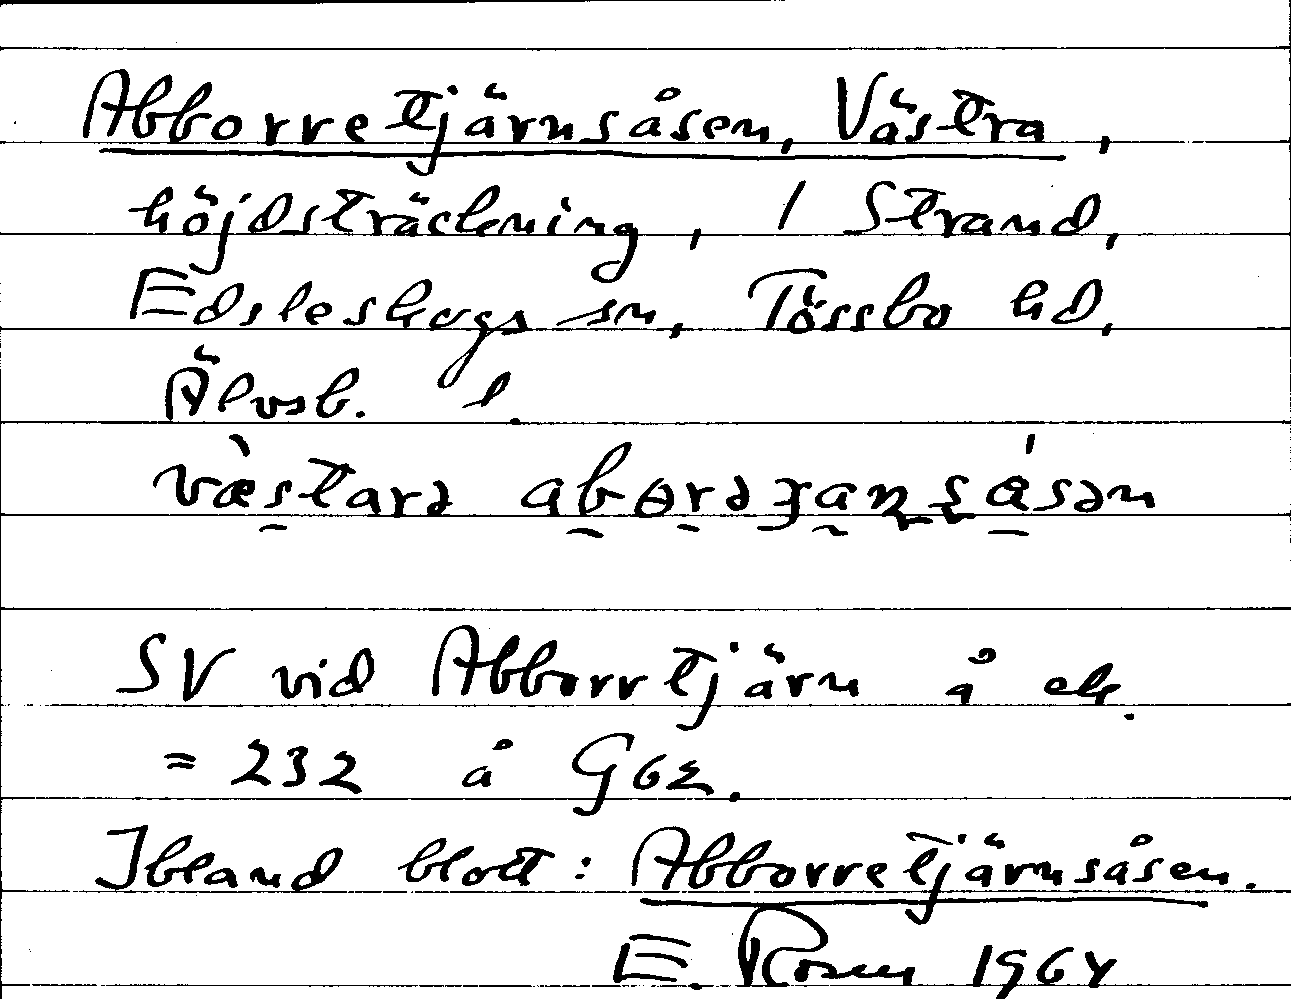 Abborretjärnsåsen, Västra,
höjdsträckning, 1 Strand,
Edsleskogs sn, Tössbo hd,
Älvsb. l.
SV vid Abborrtjärn å ek.
= 232 å G62.
Ibland blott: Abborretjärnsåsen.
E. Rosen 1964